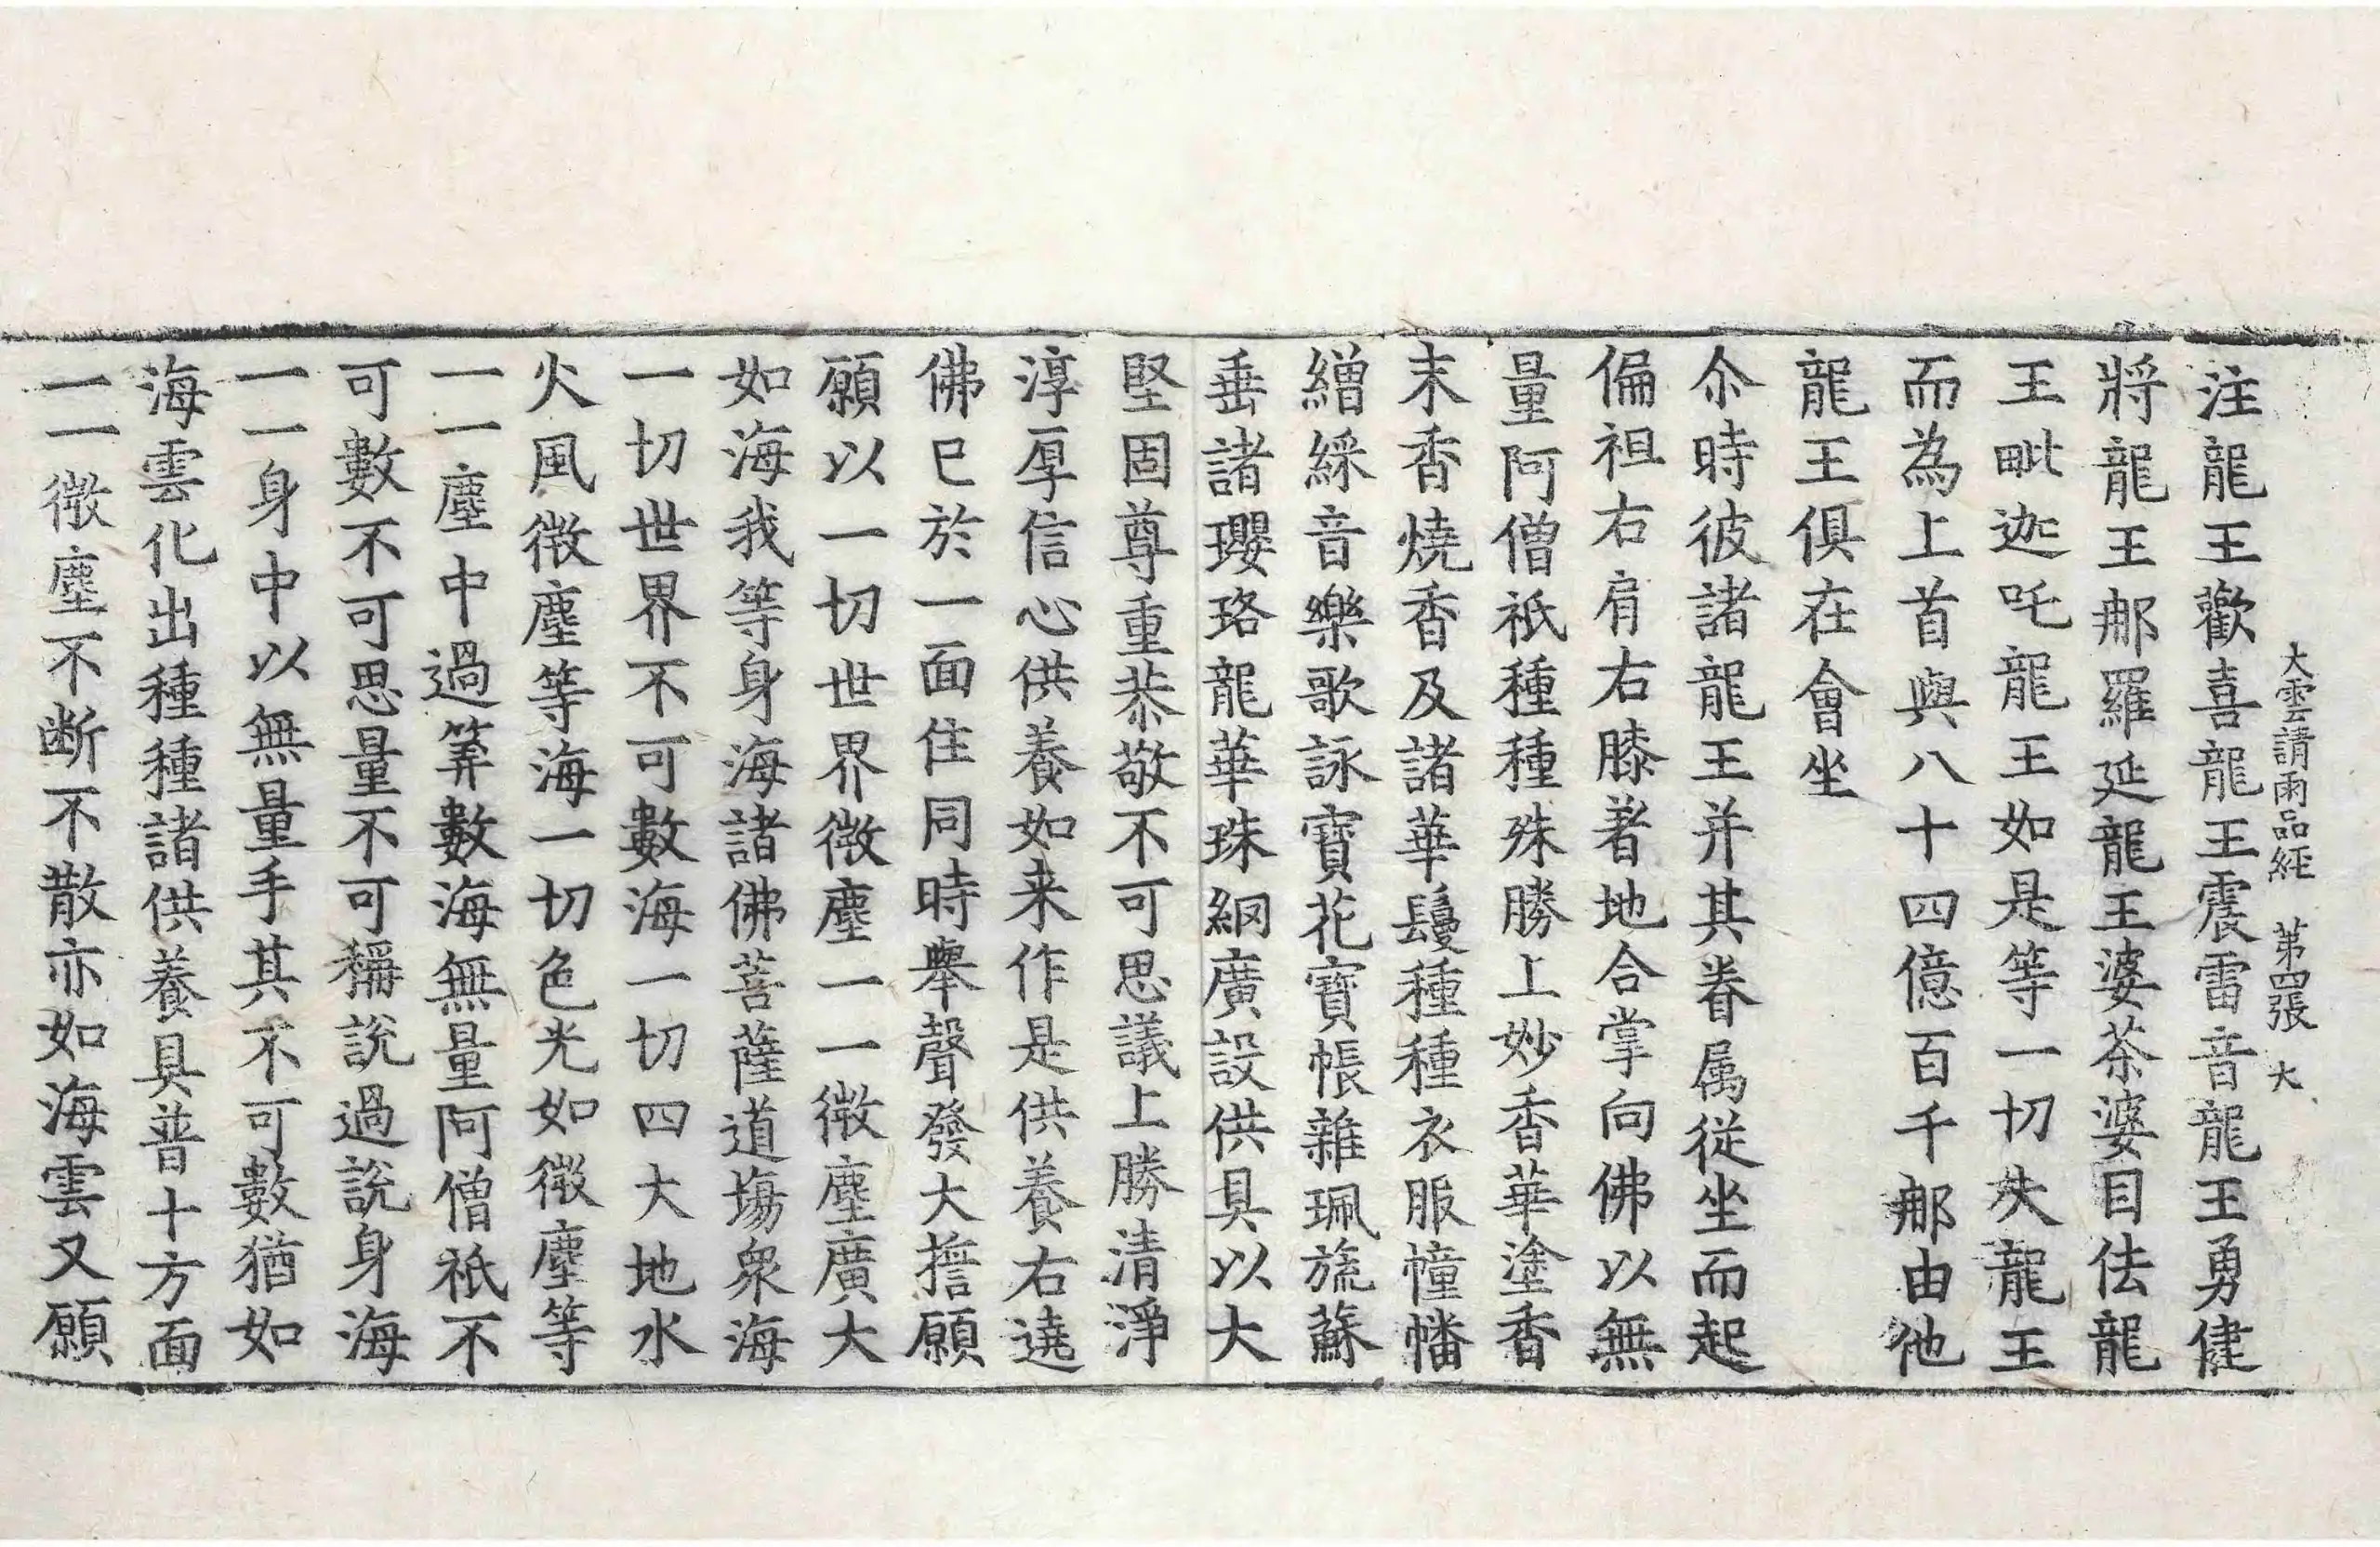 大雲請雨品經 第四張 大
注龍王歡喜龍王震雷音龍王勇健
將龍王那羅延龍王婆茶婆目佉龍
王毗迦吒龍王如是等一切大龍王
而為上首與八十四億百千那由他
龍王俱在會坐
尒時彼諸龍王并其眷属從坐而起
偏袒右肩右膝著地合掌向佛以無
量阿僧祇種種殊勝上妙香華塗香
末香燒香及諸華鬘種種衣服幢幡
繒綵音樂歌詠寶花寶帳雜珮旒蘇
垂諸瓔珞龍華珠網廣設供具以大
堅固尊重恭敬不可思議上勝清淨
淳厚信心供養如来作是供養右遶
佛已於一面住同時舉聲發大擔願
願以一切世界微塵一一微塵廣大
如海我等身海諸佛菩薩道場衆海
一切世界不可數海一切四大地水
火風微塵等海一切色光如微塵等
一一塵中過筭數海無量阿僧祇不
可數不可思量不可稱說過說身海
一一身中以無量手其不可數猶如
海雲化出種種諸供養具普十方面
一一微塵不断不散亦如海雲又願